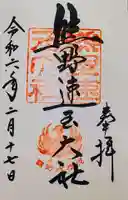 奉拝
熊野速玉大社
令和六年二月十七日